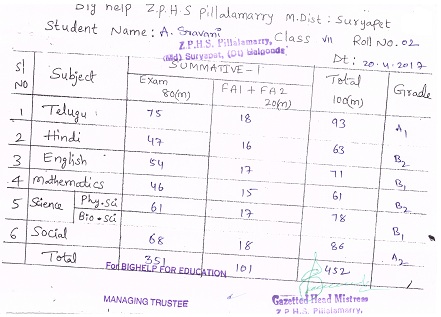 Big help Z.P.H.S Pillalamarry M.Dist: Suryapet
Student Name: A. Sravani Class VII Roll No. 02
Z.P.H.S. Pillalamarry,
(Md) Suryapet, (Dt) Nalgonda
Dt: 20-4-2017
SUMMATIVE-I
Sl NO Subject Exam 80(m) FA1+FA2 20(m) Total 100(m) Grade
1 Telugu 75 18 93 A1
2 Hindi 47 16 63 B2
3 English 54 17 71 B1
4 Mathematics 46 15 61 B2
5 Science Phy.Sci 61 17 78 B1
Bio.Sci
6 Social 68 18 86 A2
Total 351 101 452
For BIGHELP FOR EDUCATION
MANAGING TRUSTEE
Gazetted Head Mistress
Z.P.H.S. Pillalamarry,